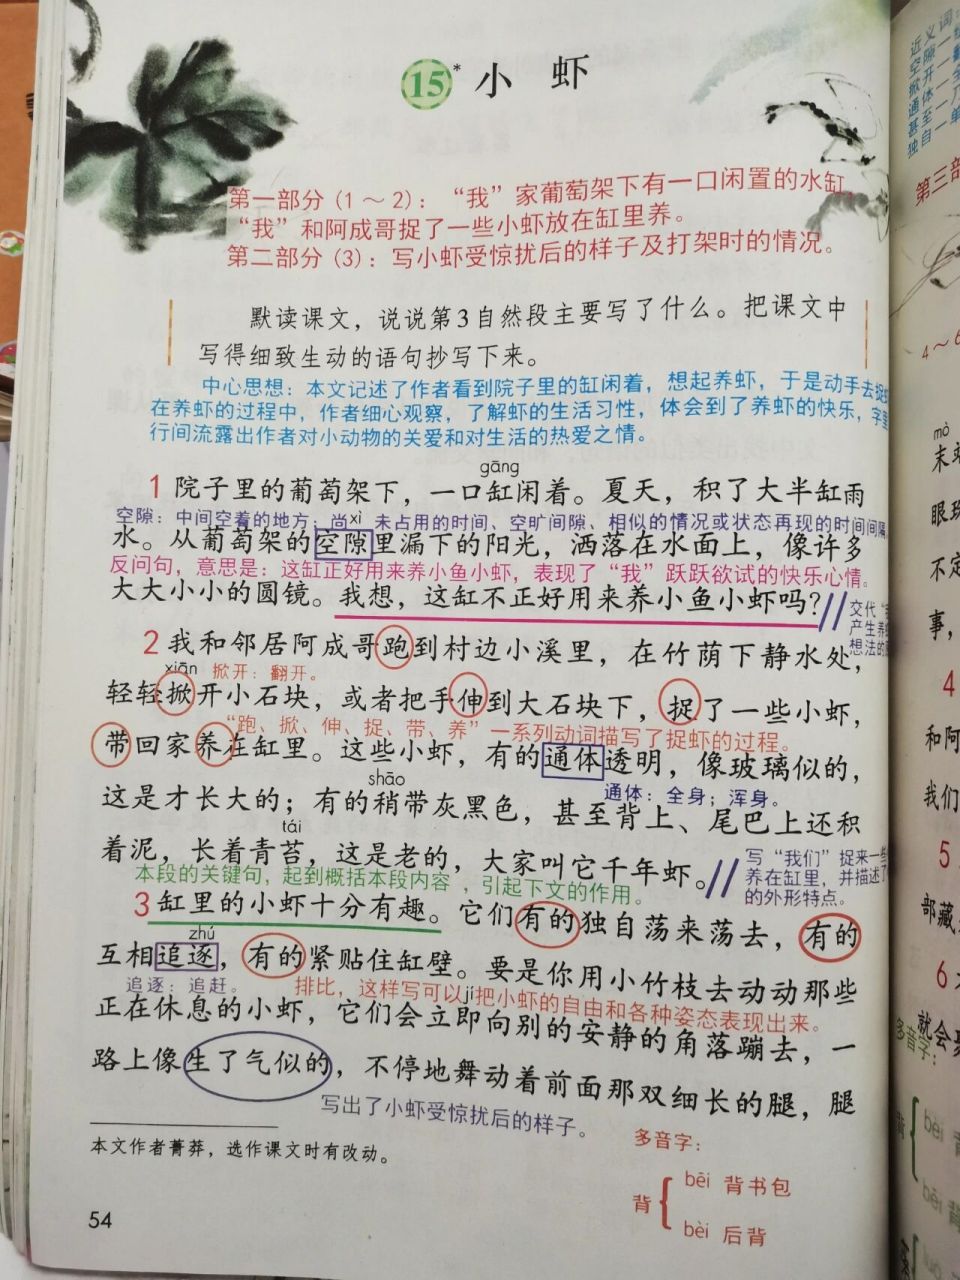 15* 小 虾
第一部分（1～2）：“我”家葡萄架下有一口闲置的水缸，
“我”和阿成哥捉了一些小虾放在缸里养。
第二部分（3）：写小虾受惊扰后的样子及打架时的情况。
默读课文，说说第3自然段主要写了什么。把课文中
写得细致生动的语句抄写下来。
中心思想：本文记述了作者看到院子里的缸闲着，想起养虾，于是动手去捉虾
在养虾的过程中，作者细心观察，了解虾的生活习性，体会到了养虾的快乐，字里
行间流露出作者对小动物的关爱和对生活的热爱之情。
gāng
1 院子里的葡萄架下，一口缸闲着。夏天，积了大半缸雨
空隙：中间空着的地方；尚 xì 未占用的时间、空旷间隙、相似的情况或状态再现的时间间隔
水。从葡萄架的空隙里漏下的阳光，洒落在水面上，像许多
反问句，意思是：这缸正好用来养小鱼小虾，表现了“我”跃跃欲试的快乐心情。
大大小小的圆镜。我想，这缸不正好用来养小鱼小虾吗？//
交代
产生养
想法的
2 我和邻居阿成哥跑到村边小溪里，在竹荫下静水处，
xiān 掀开：翻开。
轻轻掀开小石块，或者把手伸到大石块下，捉了一些小虾，
“跑、掀、伸、捉、带、养”一系列动词描写了捉虾的过程。
带回家养在缸里。这些小虾，有的通体透明，像玻璃似的，
shāo 通体：全身；浑身。
这是才长大的；有的稍带灰黑色，甚至背上、尾巴上还积
tái
着泥，长着青苔，这是老的，大家叫它千年虾。//
写“我们”捉来一些
养在缸里，并描述了
的外形特点。
本段的关键句，起到概括本段内容，引起下文的作用。
3 缸里的小虾十分有趣。它们有的独自荡来荡去，有的
zhú
互相追逐，有的紧贴住缸壁。要是你用小竹枝去动动那些
追逐：追赶。 排比，这样写可以把小虾的自由和各种姿态表现出来。
jí
正在休息的小虾，它们会立即向别的安静的角落蹦去，一
路上像生了气似的，不停地舞动着前面那双细长的腿，腿
写出了小虾受惊扰后的样子。
本文作者菁莽，选作课文时有改动。
多音字：
背 { bēi 背书包
bèi 后背
54
近义词：
空隙—
掀开—
通体—
甚至—
独自—单
第三部
4～6
mò
末
眼珠
不定
事，
4
和阿
我们
5
部藏
6
就会
多音字：
背 { bèi
bēi 背